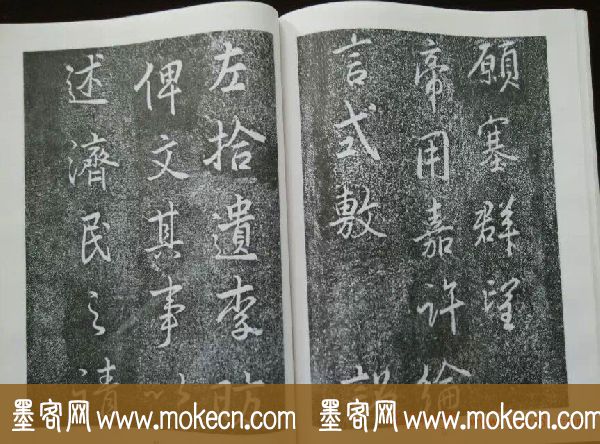 願塞群望
帝用嘉許綸
言式敷
左拾遺李昉
俾文其事
述濟民之請
墨客网 www.mokecn.com 墨客网 www.mokecn.com